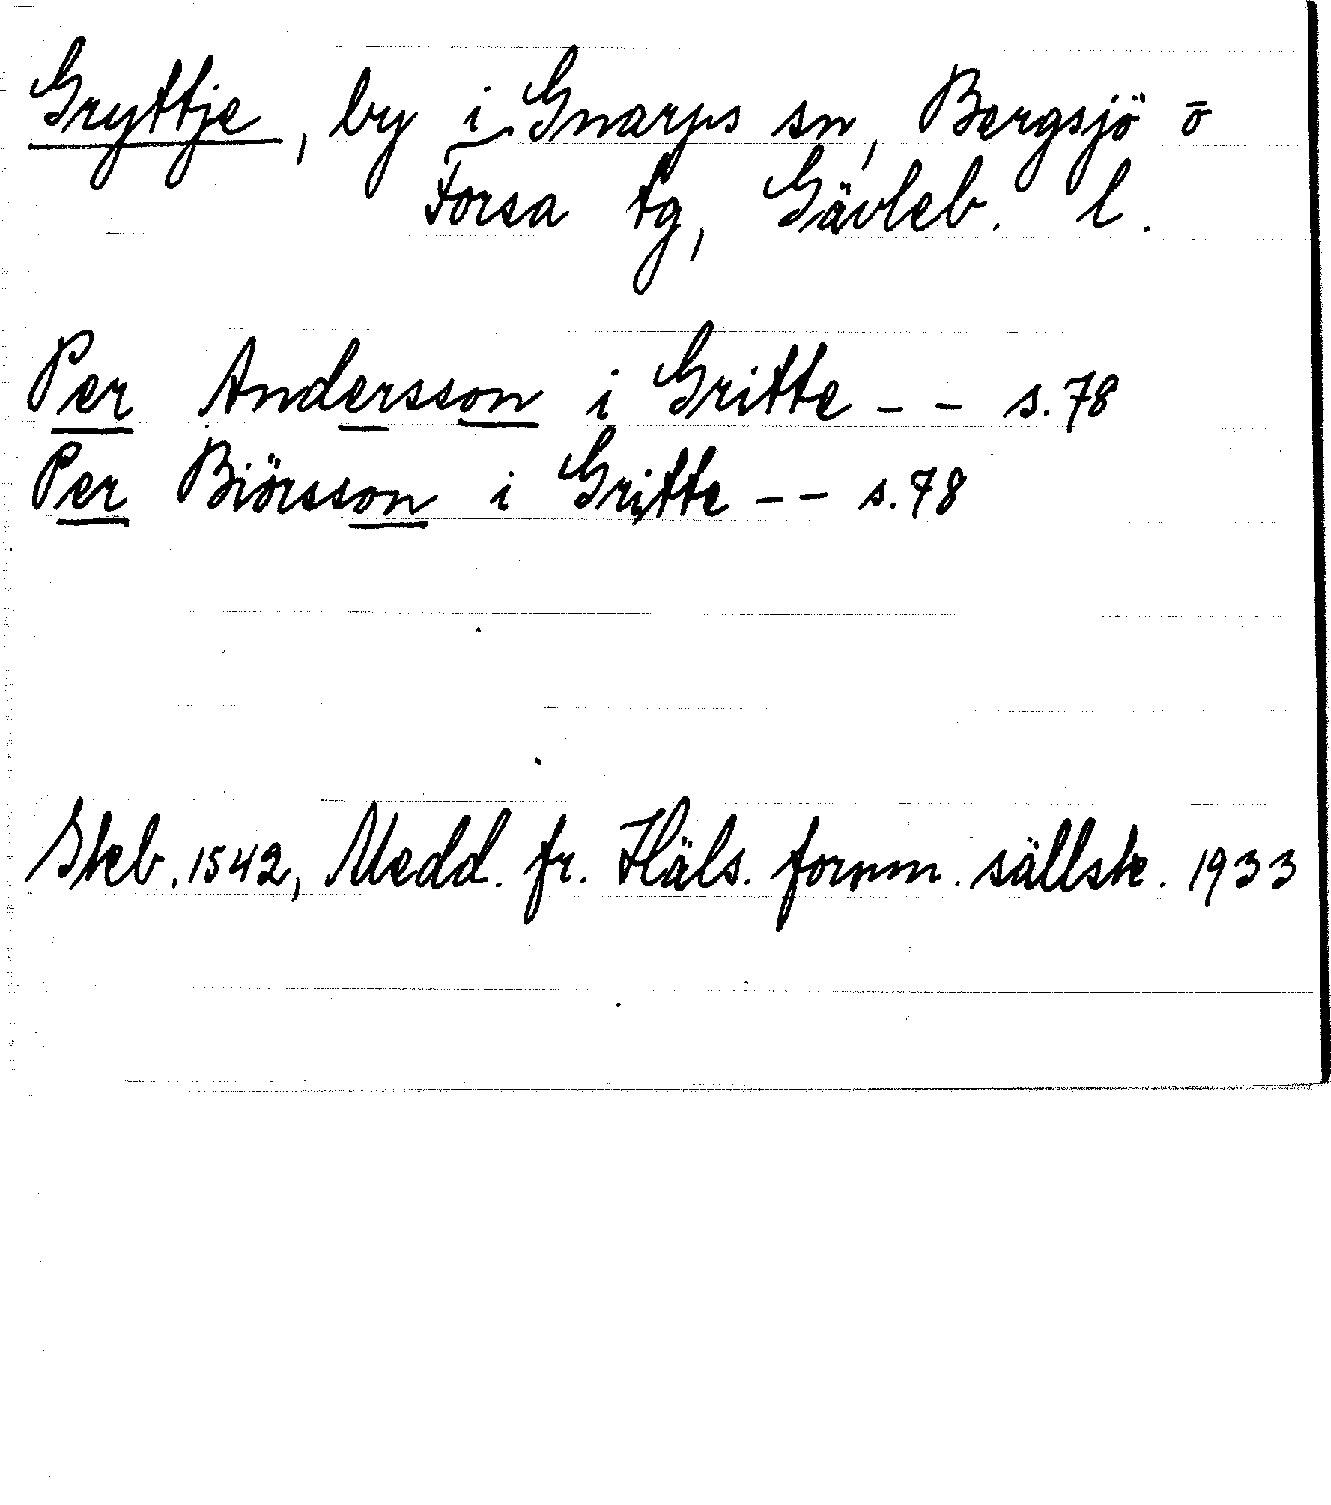 Gryttje, by i Gnarps sn, Bergsjö o
Forsa tg, Gävleb. l.
Per Andersson i Gritte - - s. 78
Per Biörsson i Gritte - - s. 78
Skeb. 1542, Medd. fr. Häls. fornm. sällsk. 1933